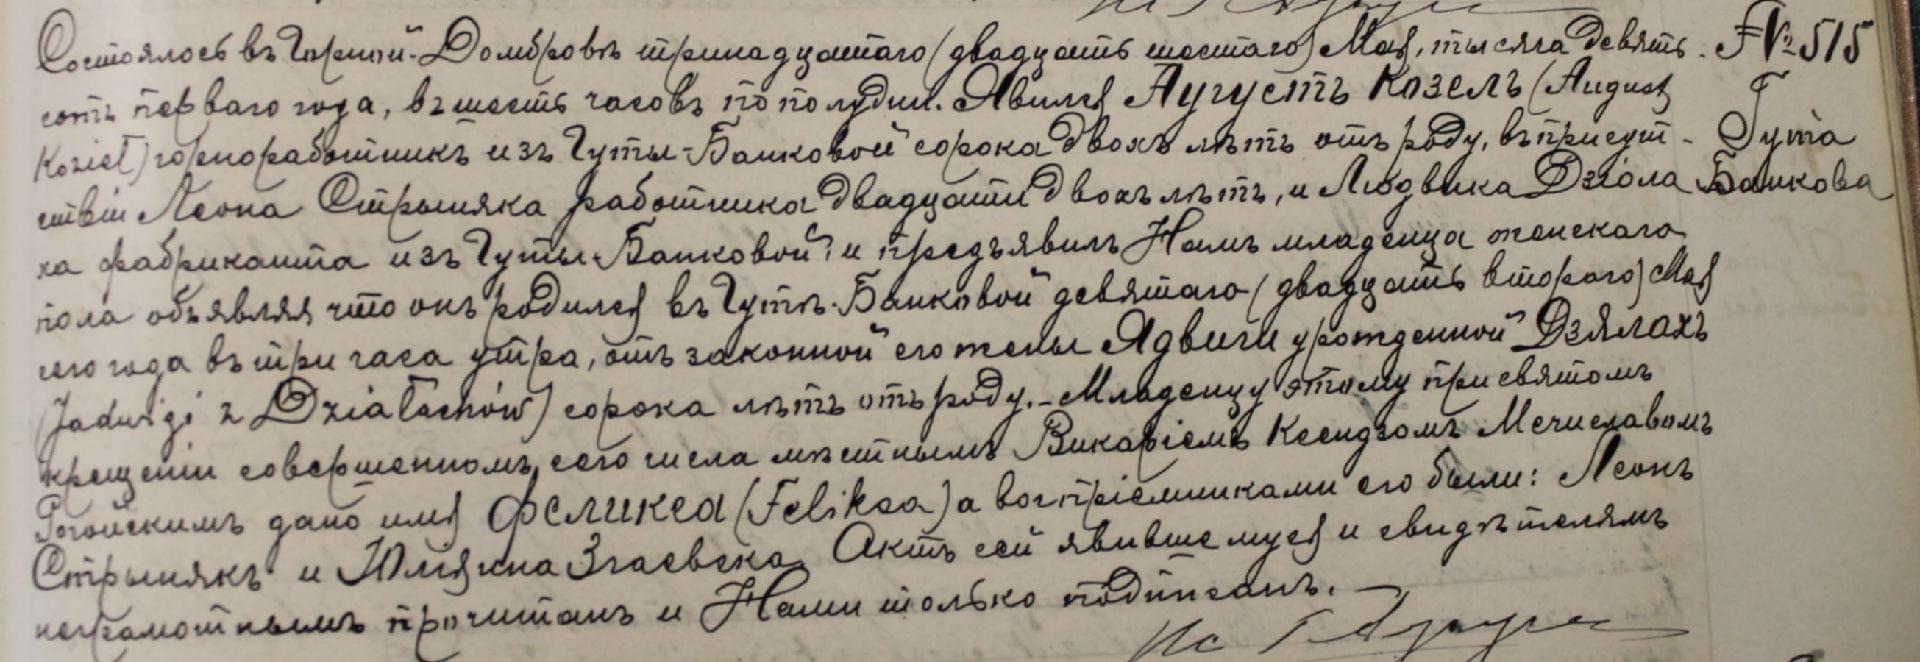 Состоялось въ Горной-Домбровѣ тринадцатаго (двадцать шестаго) Мая, тысяча девять- №515
сотъ перваго года, въ шесть часовъ пополудни. Явился Аугустъ Козелъ (August
Kozieł) горноработникъ изъ Гуты-Банковой сорока двохъ лѣтъ отъ роду, въ присут- Гута
ствіи Леона Стрыняка работника двадцати двохъ лѣтъ, и Людвика Дзіола Банкова
ха фабриканта изъ Гуты-Банковой, и предъявилъ Намъ младенца женскаго
пола объявляя что онъ родился въ Гутѣ-Банковой девятаго (двадцать втораго) Мая
сего года въ три часа утра, отъ законной его жены Ядвиги урожденной Дзялахъ
(Jadwigi z Działachów) сорока лѣтъ отъ роду. - Младенцу этому при святомъ
крещеніи совершенномъ, сего числа мѣстнымъ Викаріемъ Ксендзомъ Мечиславомъ
дано имя Феликса (Feliksa) а воспріемниками его были: Леонъ
Стрынякъ и Юліянна Згаевска. Актъ сей явившемуся и свидѣтелямъ
неграмотнымъ прочитанъ и Нами только подписанъ. -